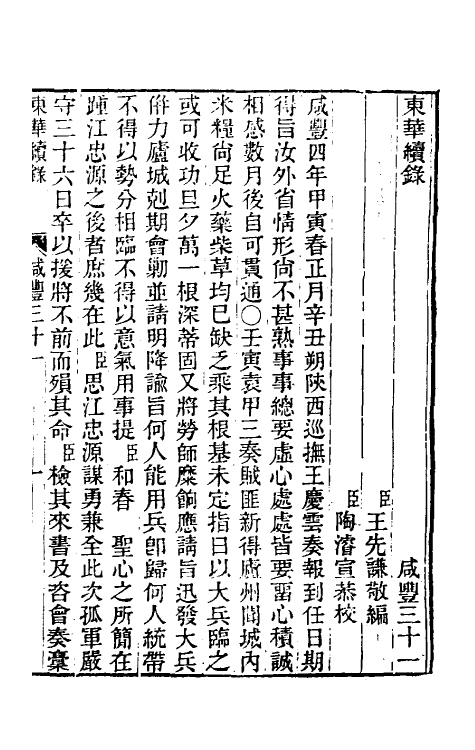 東華續錄 咸豐三十一
臣王先謙敬編
臣陶濬宣恭校
咸豐四年甲寅春正月辛丑朔陝西巡撫王慶雲奏報到任日期
得旨汝外省情形尙不甚熟事事總要虛心處處皆要畱心積誠
相感數月後自可貫通〇壬寅袁甲三奏賊匪新得廬州闔城內
米糧尙足火藥柴草均已缺乏乘其根基未定指日以大兵臨之
或可收功旦夕萬一根深蒂固又將勞師糜餉應請旨迅發大兵
倂力廬城剋期會勦並請明降諭旨何人能用兵卽歸何人統帶
不得以勢分相臨不得以意氣用事提臣和春 聖心之所簡在
踵江忠源之後者庶幾在此臣思江忠源謀勇兼全此次孤軍嚴
守三十六日卒以援將不前而殞其命臣檢其來書及咨會奏稾
東華續錄 咸豐三十一 一